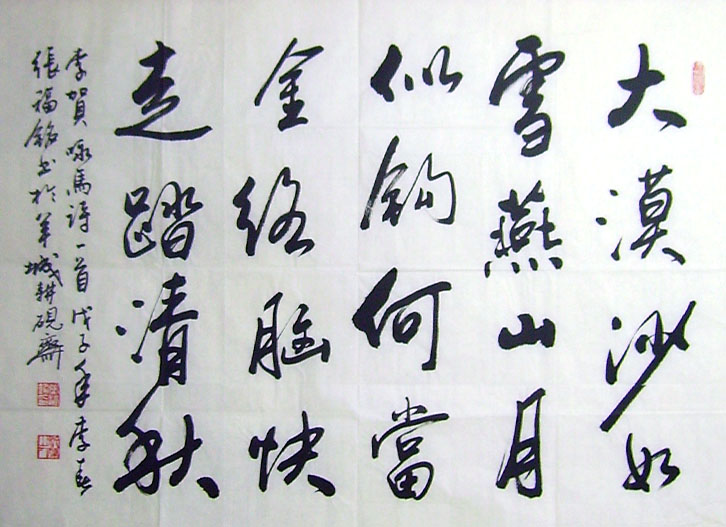 大漠沙如
雪燕山月
似鈎何當
金络腦快
走踏清秋
李賀咏馬詩一首戊子年季春
張福銘书於羊城耕硯齋